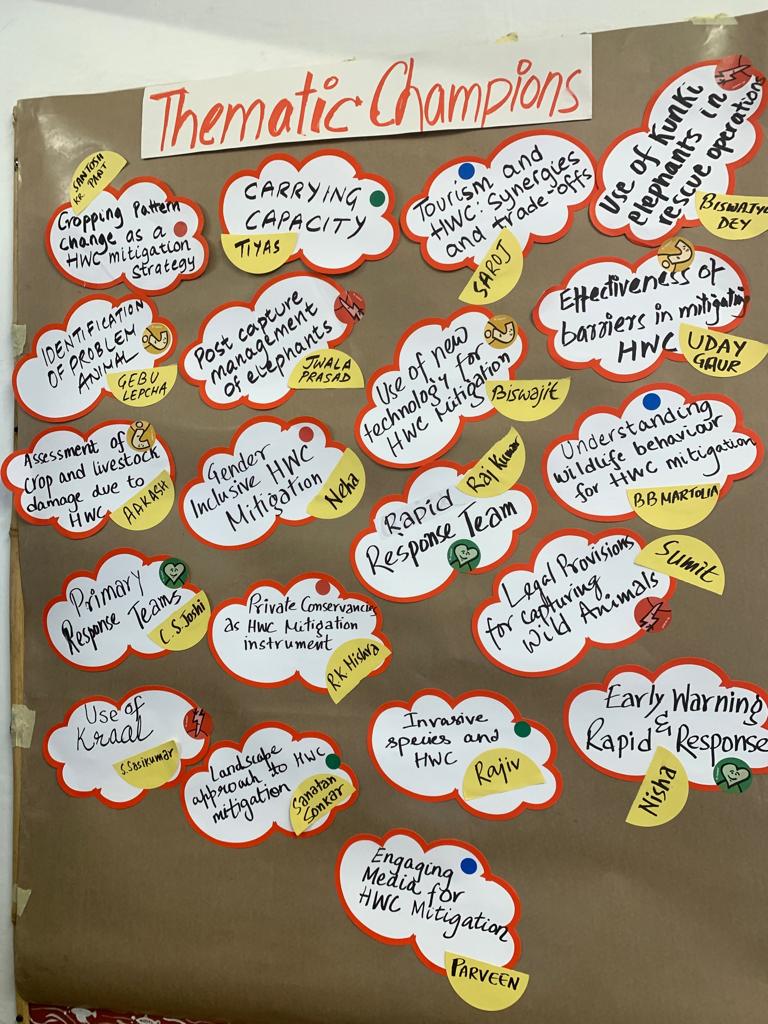 Thematic Champions
SANTOSH
KR. PANT
Cropping Pattern
change as a
HWC mitigation
Strategy
CARRYING
CAPACITY
TIYAS
Tourism and
HWC: Synergies
and trade-offs
SAROJ
Use of Kunki
elephants in
rescue operations
DEY
IDENTIFICATION
OF PROBLEM
ANIMAL
GEBU
LEPCHA
Post capture
management
of elephants
JWALA
PRASAD
Use of new
technology for
HWC Mitigation
Biswajit
Effectiveness of
barriers in mitigating
HWC
UDAY
GAUR
Assessment of
crop and livestock
damage due to
HWC
AAKASH
Gender
Inclusive HWC
Mitigation
Neha
Rapid
Response Team
Raj Kumar
Understanding
wildlife behaviour
for HWC mitigation
BB MARTOLIA
Primary
Response Teams
C.S. Joshi
Private Conservancies
as HWC Mitigation
instrument
R.K Mishra
Legal Provisions
for capturing
Wild Animals
Sumit
Use of
Kraal
S. Sasikumar
Landscape
approach to HWC
mitigation
Sanatan
Sonkar
Invasive
species and
HWC
Rajiv
Early Warning
&
Rapid Response
Nisha
Engaging
Media for
HWC Mitigation
PARVEEN